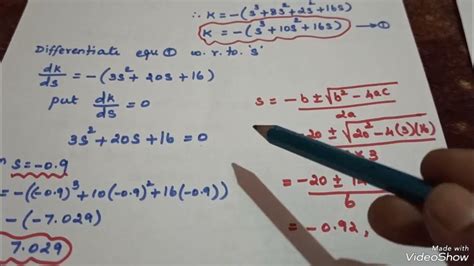 ∴ K = -(s³+8s²+2s²+16s)
K = -(s³+10s²+16s) → ①
Differentiate equ ① w.r.to 's'
dk/ds = -(3s²+20s+16)
put dk/ds = 0
3s²+20s+16 = 0
s = -b ± √b²-4ac / 2a
-20 ± √20²-4(3)(16)
×3
= -20 ± / 6
= -0.92,
s = -0.9
= -((-0.9)³+10(-0.9)²+16(-0.9))
-(-7.029)
7.029
Made with
VideoShow